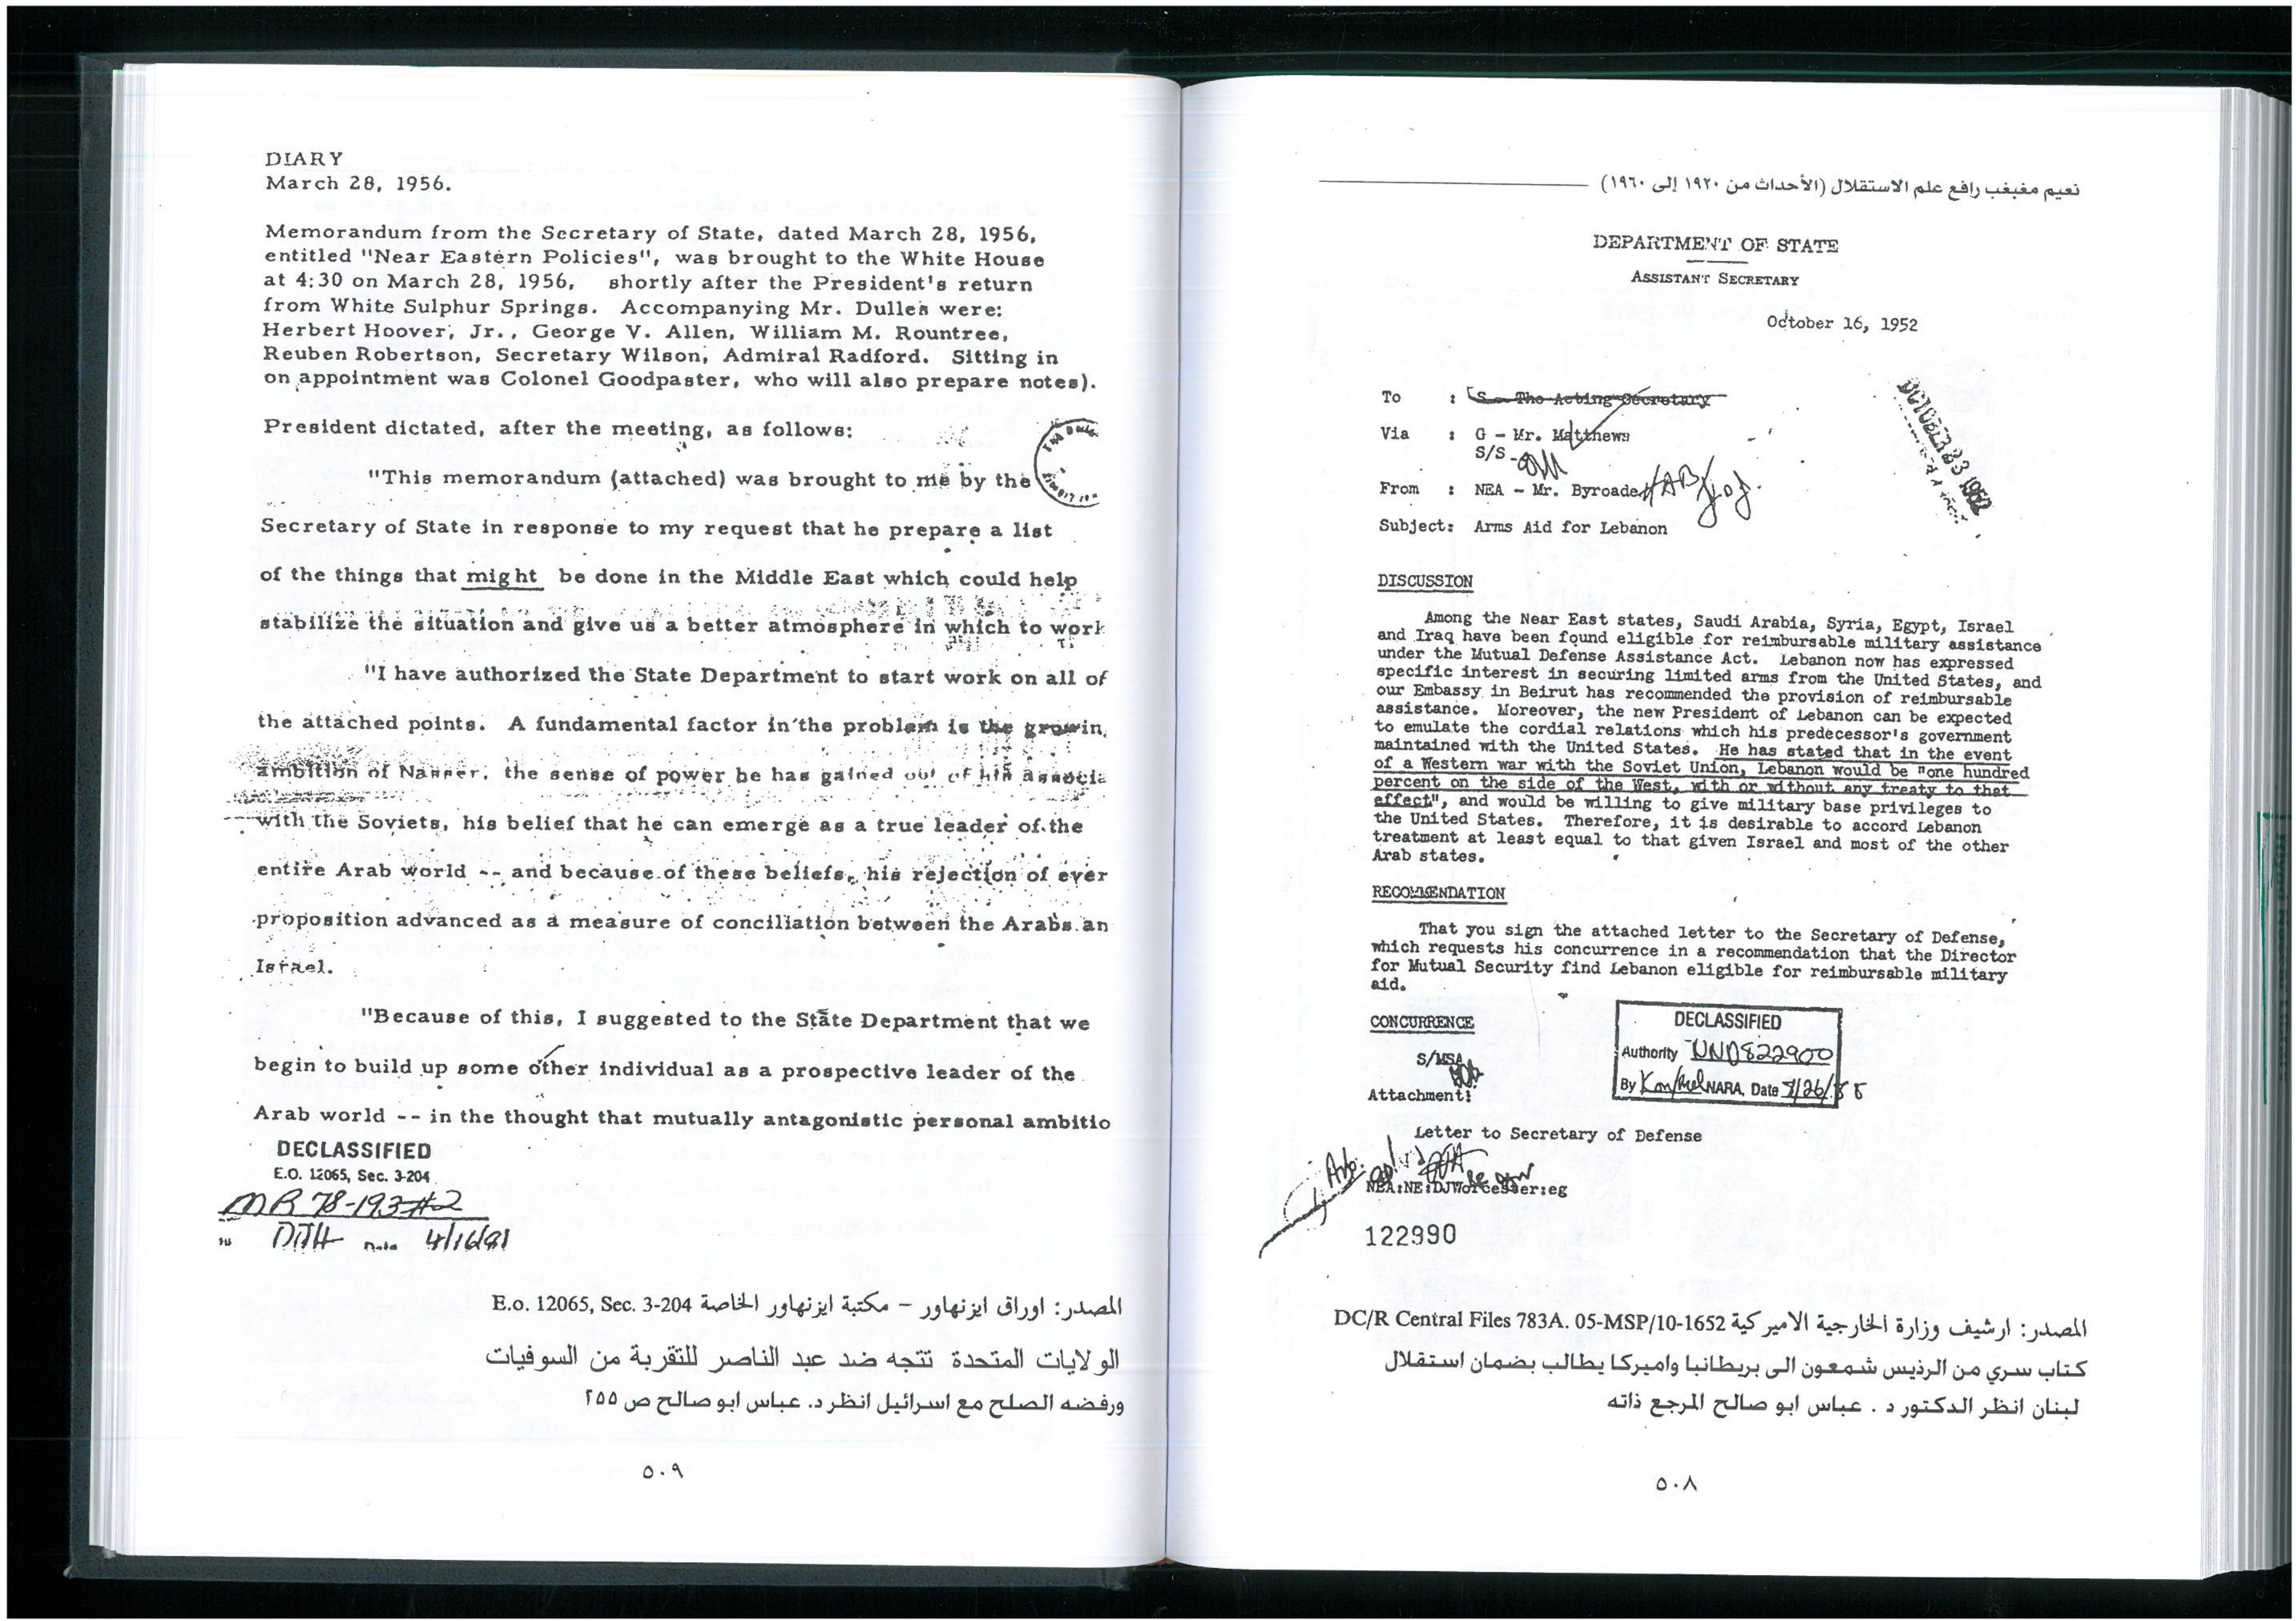 نعيم مغبغب رافع علم الاستقلال (الأحداث من ١٩٢٠ إلى ١٩٦٠)
DEPARTMENT OF STATE
ASSISTANT SECRETARY
October 16, 1952
To : S - The Acting Secretary
Via : G - Mr. Matthews
S/S
From : NEA - Mr. Byroade
Subject: Arms Aid for Lebanon
DISCUSSION
Among the Near East states, Saudi Arabia, Syria, Egypt, Israel
and Iraq have been found eligible for reimbursable military assistance
under the Mutual Defense Assistance Act. Lebanon now has expressed
specific interest in securing limited arms from the United States, and
our Embassy in Beirut has recommended the provision of reimbursable
assistance. Moreover, the new President of Lebanon can be expected
to emulate the cordial relations which his predecessor's government
maintained with the United States. He has stated that in the event
of a Western war with the Soviet Union, Lebanon would be "one hundred
percent on the side of the West, with or without any treaty to that
effect", and would be willing to give military base privileges to
the United States. Therefore, it is desirable to accord Lebanon
treatment at least equal to that given Israel and most of the other
Arab states.
RECOMMENDATION
That you sign the attached letter to the Secretary of Defense,
which requests his concurrence in a recommendation that the Director
for Mutual Security find Lebanon eligible for reimbursable military
aid.
CONCURRENCE
S/MSA
Attachment:
Letter to Secretary of Defense
DECLASSIFIED
Authority NND822900
By NARA, Date
NEA:NE:DJWorcester:eg
122990
المصدر: ارشيف وزارة الخارجية الاميركية DC/R Central Files 783A. 05-MSP/10-1652
كتاب سري من الرئيس شمعون الى بريطانيا واميركا يطالب بضمان استقلال
لبنان انظر الدكتور د . عباس ابو صالح المرجع ذاته
٥٠٨
DIARY
March 28, 1956.
Memorandum from the Secretary of State, dated March 28, 1956,
entitled "Near Eastern Policies", was brought to the White House
at 4:30 on March 28, 1956, shortly after the President's return
from White Sulphur Springs. Accompanying Mr. Dulles were:
Herbert Hoover, Jr., George V. Allen, William M. Rountree,
Reuben Robertson, Secretary Wilson, Admiral Radford. Sitting in
on appointment was Colonel Goodpaster, who will also prepare notes).
President dictated, after the meeting, as follows:
"This memorandum (attached) was brought to me by the
Secretary of State in response to my request that he prepare a list
of the things that might be done in the Middle East which could help
stabilize the situation and give us a better atmosphere in which to work
"I have authorized the State Department to start work on all of
the attached points. A fundamental factor in the problem is the growin
ambition of Nasser, the sense of power he has gained out of his associa
with the Soviets, his belief that he can emerge as a true leader of the
entire Arab world -- and because of these beliefs, his rejection of ever
proposition advanced as a measure of conciliation between the Arabs an
Israel.
"Because of this, I suggested to the State Department that we
begin to build up some other individual as a prospective leader of the
Arab world -- in the thought that mutually antagonistic personal ambitio
DECLASSIFIED
E.O. 12065, Sec. 3-204
MR 78-193 #2
DJH Date 4/16/81
المصدر: اوراق ايزنهاور – مكتبة ايزنهاور الخاصة E.o. 12065, Sec. 3-204
الولايات المتحدة تتجه ضد عبد الناصر للتقربة من السوفيات
ورفضه الصلح مع اسرائيل انظر د. عباس ابو صالح ص ٢٥٥
٥٠٩